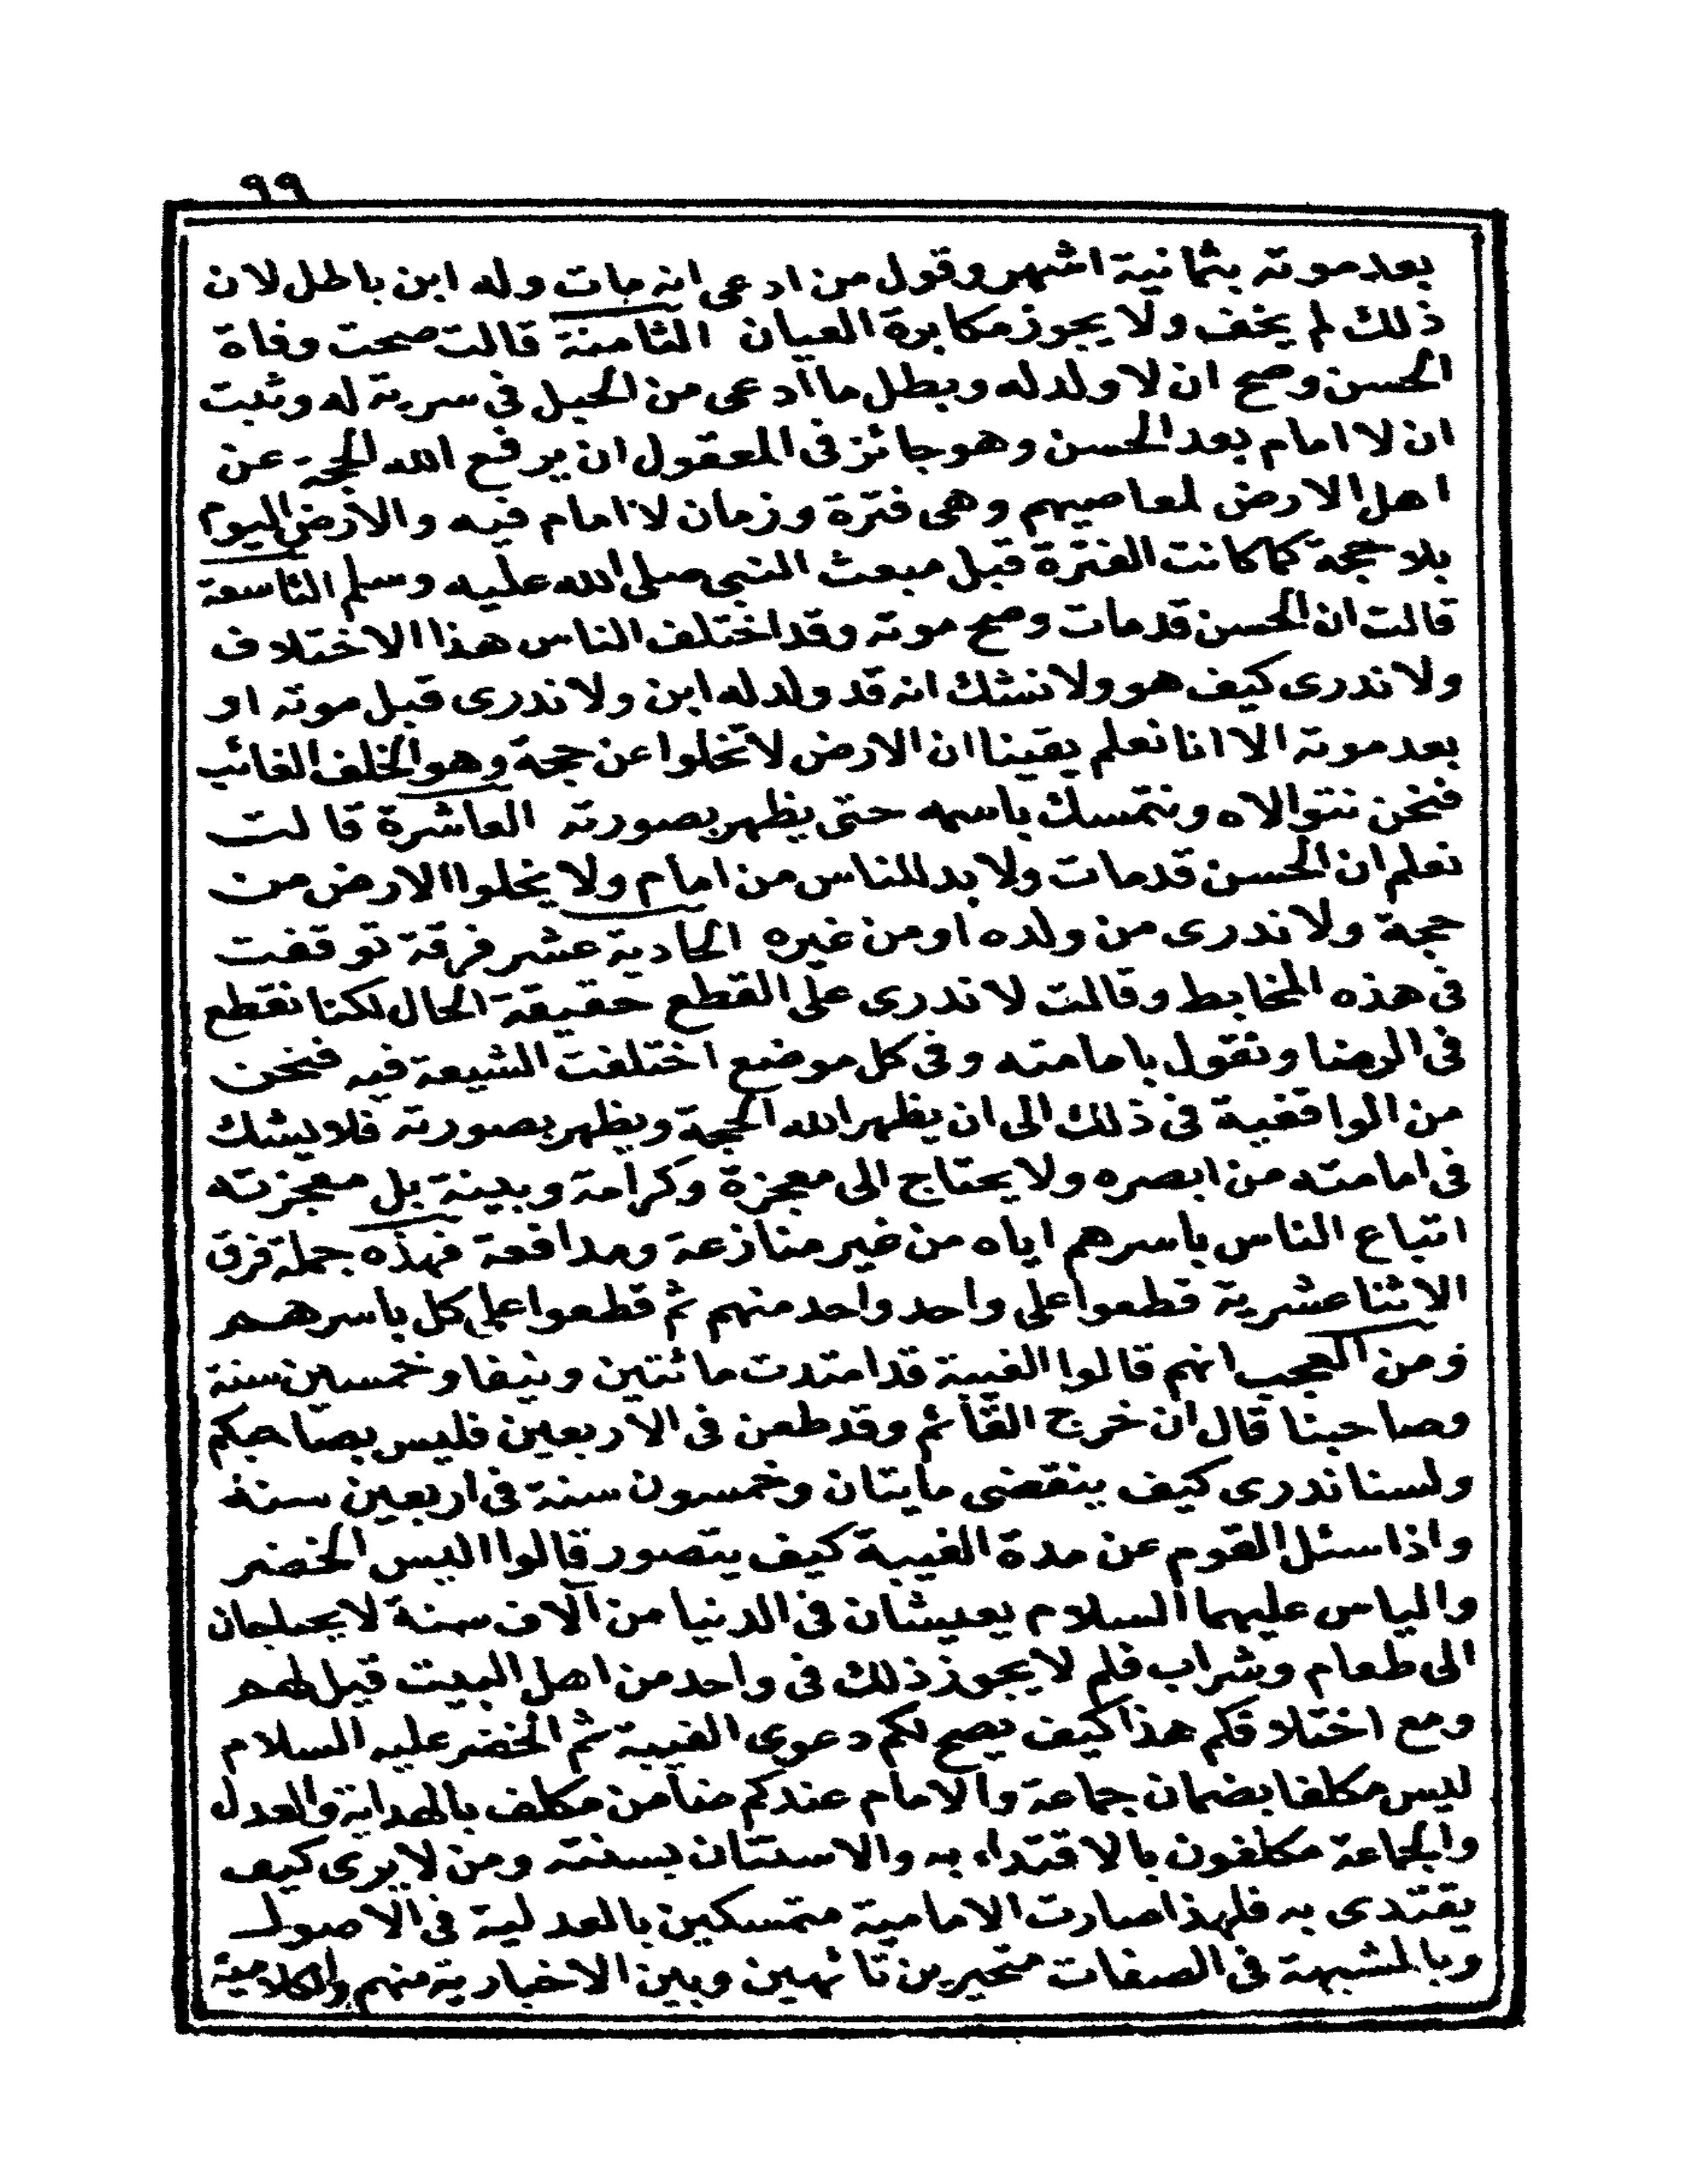 ٩٩
بعد موته بثمانية اشهر وقول من ادعى انه مات وله ابن باطل لان
ذلك لم يخف ولا يجوز مكابرة العيان الثامنة قالت صحت وفاة
الحسن وصح ان لا ولد له وبطل ما ادعى من الحيل فى سرية له وثبت
ان لا امام بعد الحسن وهو جائز فى المعقول ان يرفع الله الحجة عن
اهل الارض لمعاصيهم وهى فترة وزمان لا امام فيه والارض اليوم
بلا حجة كما كانت الفترة قبل مبعث النبى صلى الله عليه وسلم التاسعة
قالت ان الحسن قد مات وصح موته وقد اختلف الناس هذا الاختلاف
ولا ندرى كيف هو ولا نشك انه قد ولد له ابن ولا ندرى قبل موته او
بعد موته الا انا نعلم يقينا ان الارض لا تخلوا عن حجة وهو الخلف الغائب
فنحن نتوالاه ونتمسك باسمه حتى يظهر بصورته العاشرة قالت
نعلم ان الحسن قد مات ولا بد للناس من امام ولا يخلوا الارض من
حجة ولا ندرى من ولده او من غيره الحادية عشر فرقة توقفت
فى هذه المخابط وقالت لا ندرى على القطع حقيقة الحال لكنا نقطع
فى الرضا ونقول بامامته وفى كل موضع اختلفت الشيعة فيه فنحن
من الواقفية فى ذلك الى ان يظهر الله الحجة ويظهر بصورته فلا يشك
فى امامته من ابصره ولا يحتاج الى معجزة وكرامة وبينة بل معجزته
اتباع الناس باسرهم اياه من غير منازعة ومدافعة فهذه جملة فرق
الاثنا عشرية قطعوا على واحد واحد منهم ثم قطعوا على كل باسرهم
ومن العجب انهم قالوا الغيبة قد امتدت مائتين ونيفا وخمسين سنة
وصاحبنا قال ان خرج القائم وقد طعن فى الاربعين فليس بصاحبكم
ولسنا ندرى كيف ينقضى مايتان وخمسون سنة فى اربعين سنة
واذا سئل القوم عن مدة الغيبة كيف يتصور قالوا اليس الخضر
والياس عليهما السلام يعيشان فى الدنيا من آلاف سنة لا يحتاجان
الى طعام وشراب فلم لا يجوز ذلك فى واحد من اهل البيت قيل لهم
ومع اختلافكم هذا كيف يصح لكم دعوى الغيبة ثم الخضر عليه السلام
ليس مكلفا بضمان جماعة والامام عندكم ضامن مكلف بالهداية والعدل
والجماعة مكلفون بالاقتداء به والاستنان بسنته ومن لا يرى كيف
يقتدى به فلهذا صارت الامامية متمسكين بالعدلية فى الاصول
وبالمشبهة فى الصفات متحيرين تائهين وبين الاخبارية منهم والكلامية